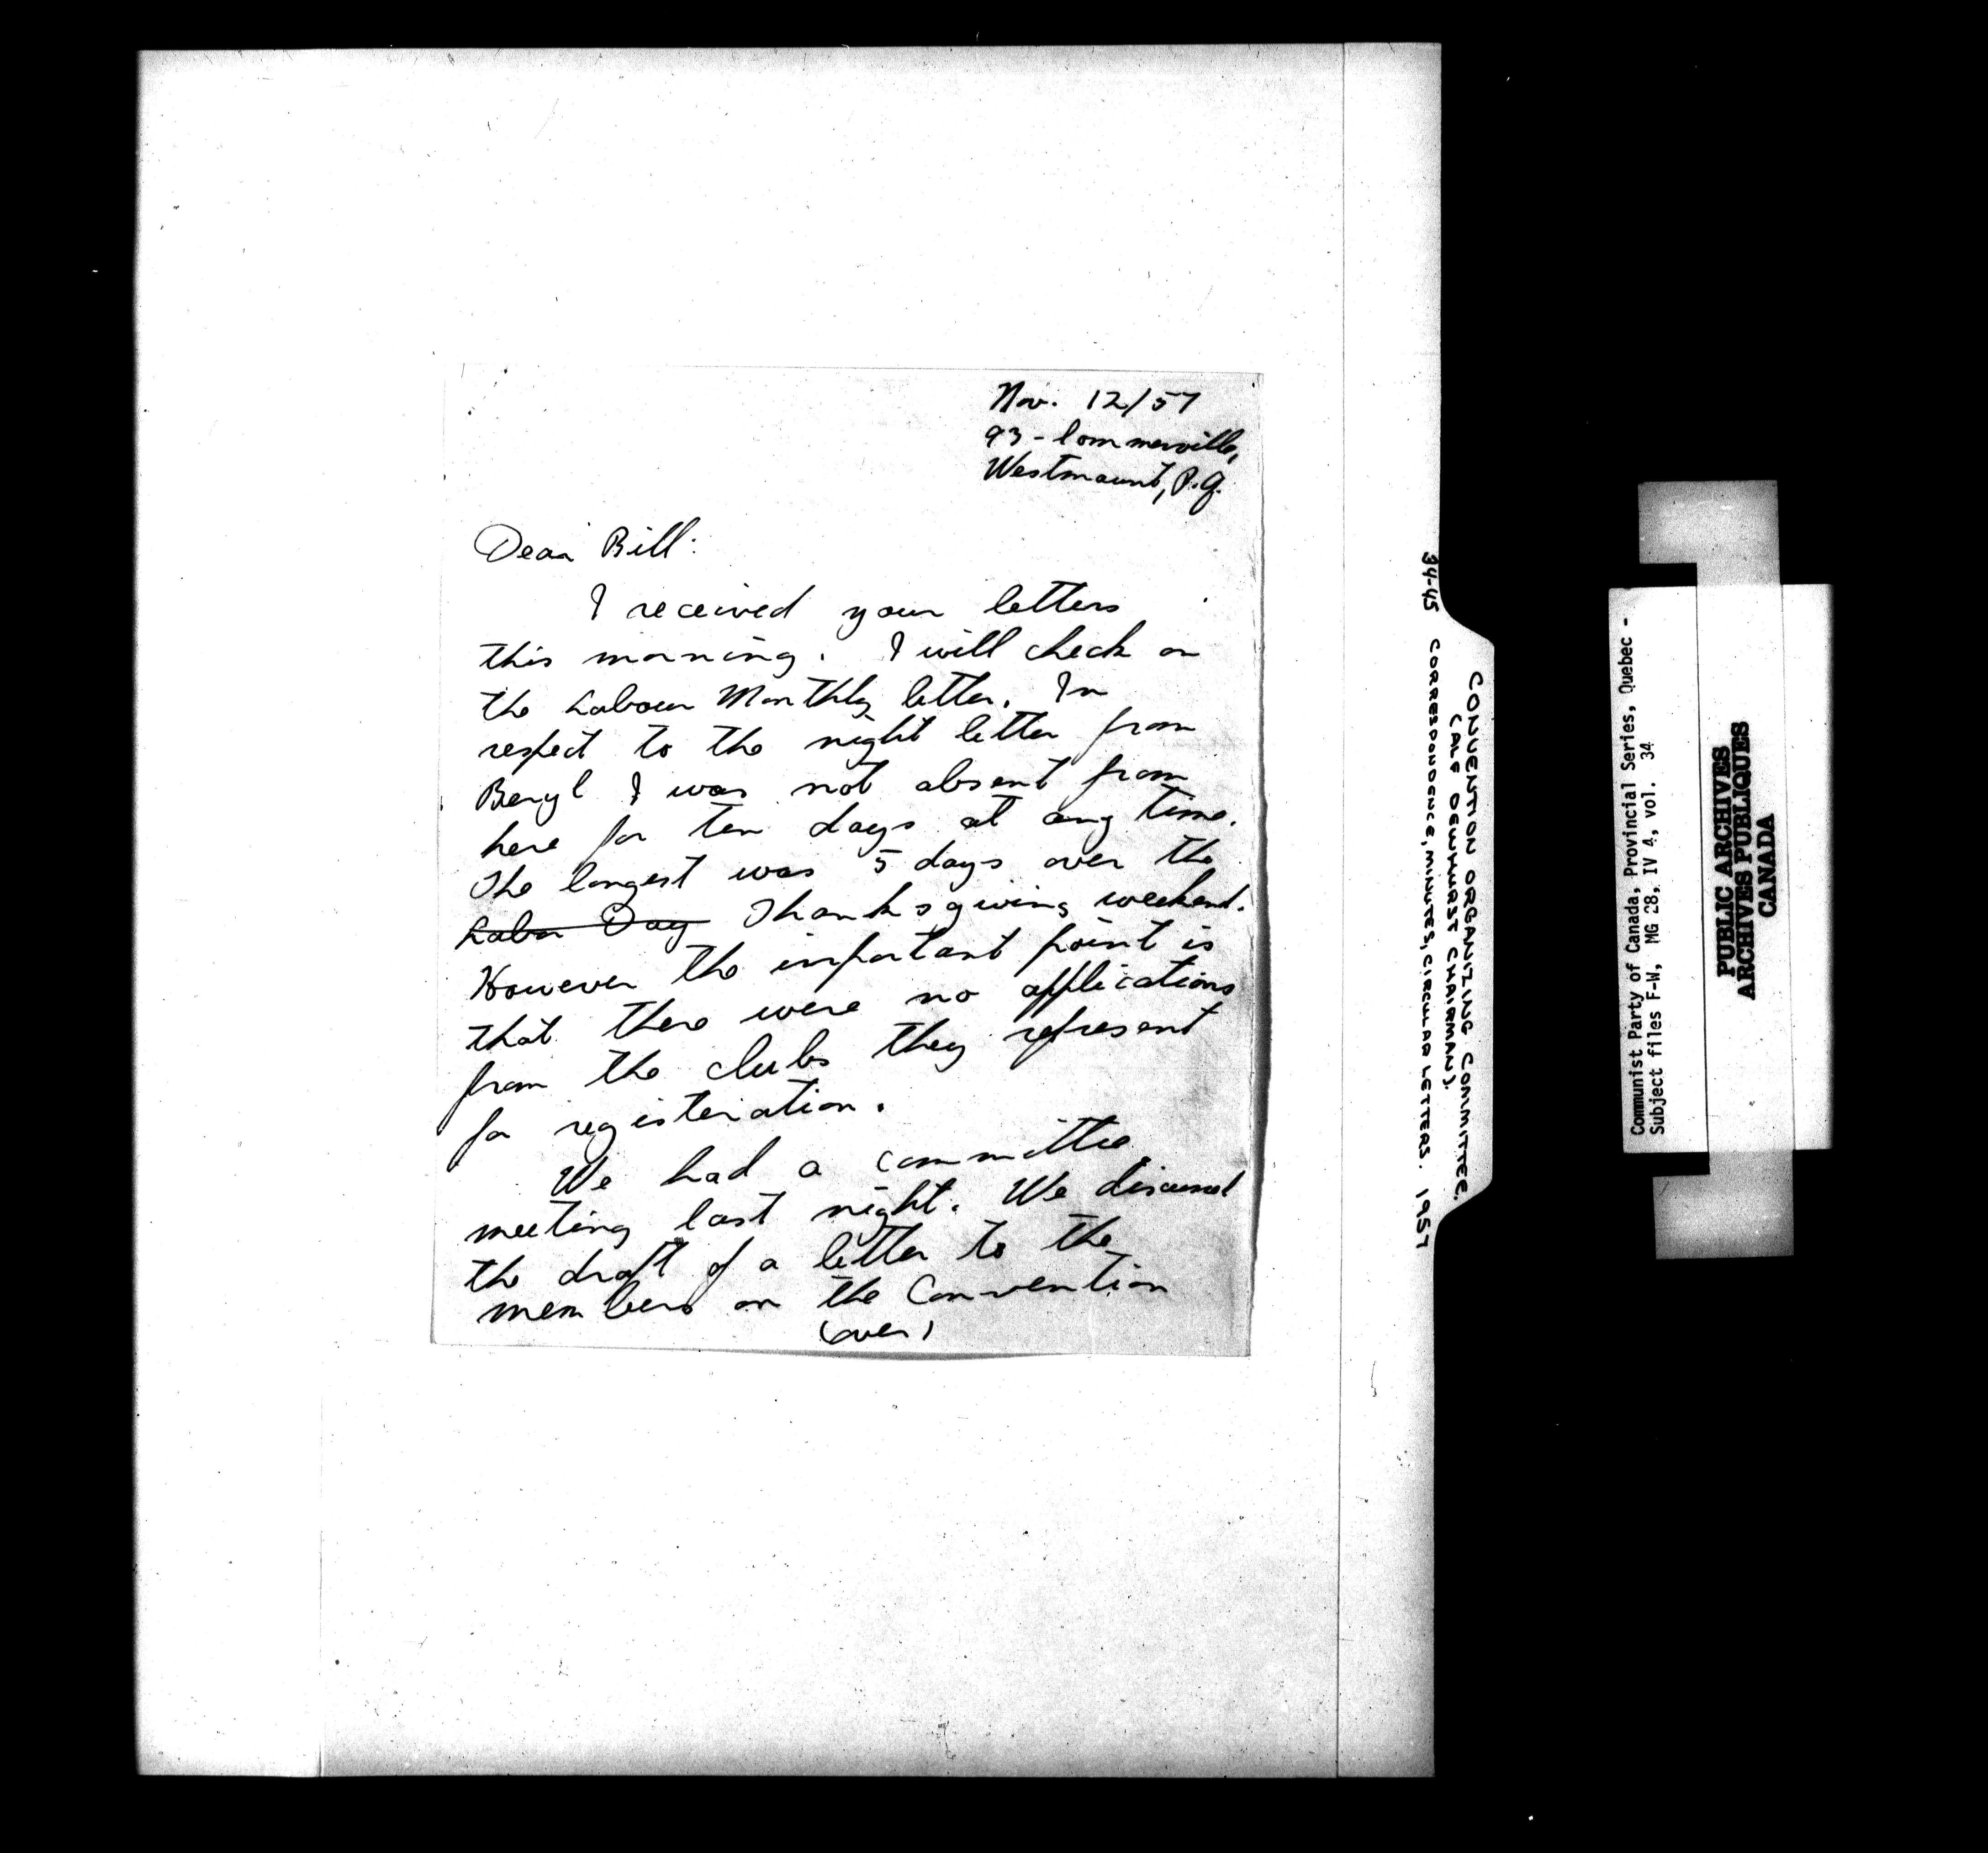 Nov. 12/57
93 - Sommerville,
Westmount, P.Q.
Dear Bill:
I received your letters
this morning. I will check on
the Labour Monthly letter. In
respect to the night letter from
Beryl I was not absent from
here for ten days at any time.
The longest was 5 days over the
Labor Day Thanksgiving weekend.
However the important point is
that there were no applications
from the clubs they represent
for registeriation.
We had a committee
meeting last night. We discussed
the draft of a letter to the
members on the Convention
(over)
34-45 CONVENTION ORGANIZING COMMITTEE.
(CALF DEWHURST CHAIRMAN).
CORRESPONDENCE, MINUTES, CIRCULAR LETTERS. 1957
Communist Party of Canada, Provincial Series, Quebec -
Subject files F-W, MG 28, IV 4, vol. 34
PUBLIC ARCHIVES
ARCHIVES PUBLIQUES
CANADA